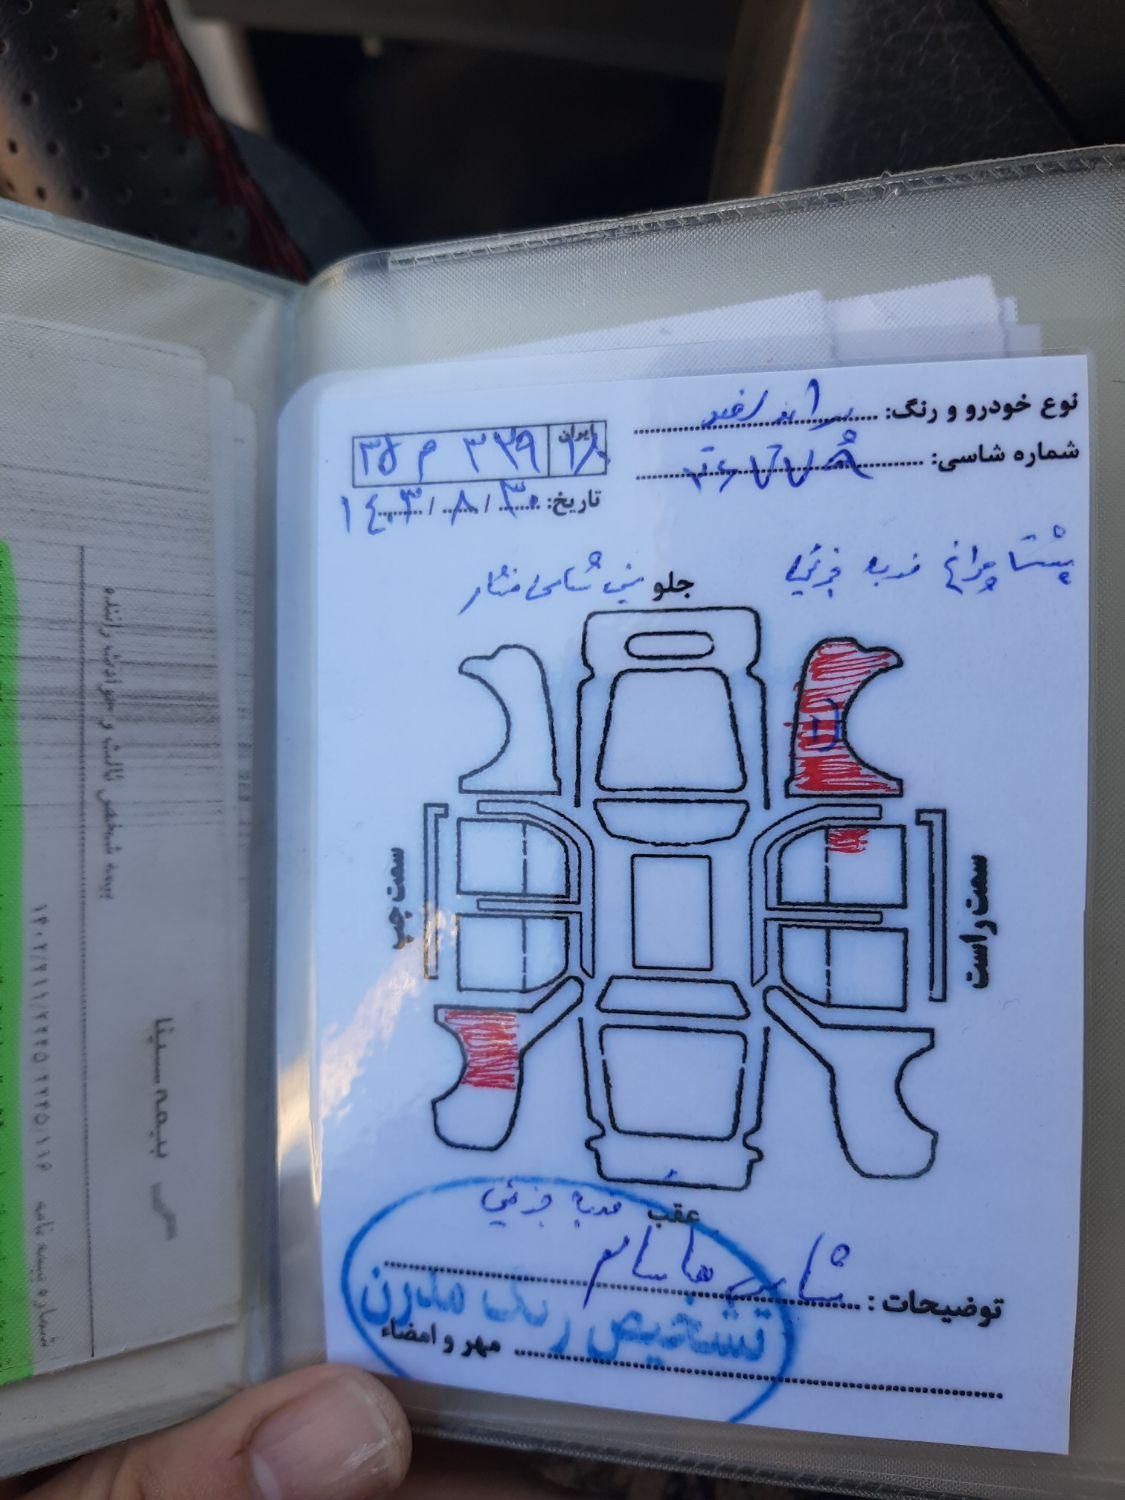 نوع خودرو و رنگ: پراید سفید
شماره شاسی:
ایران ۱۸ ۳۳۹ م ۳۵
تاریخ: ۳۰ / ۸ / ۱۴۰۳
پشت چراغ ضربه جزئی
جلو سینی شاسی فشار
سمت چپ
سمت راست
عقب ضربه جزئی
توضیحات: شاسی ها سالم
مهر و امضاء
تشخیص رنگ مدرن
بیمه شخص ثالث و حوادث راننده
بیمه سینا
شماره بیمه نامه